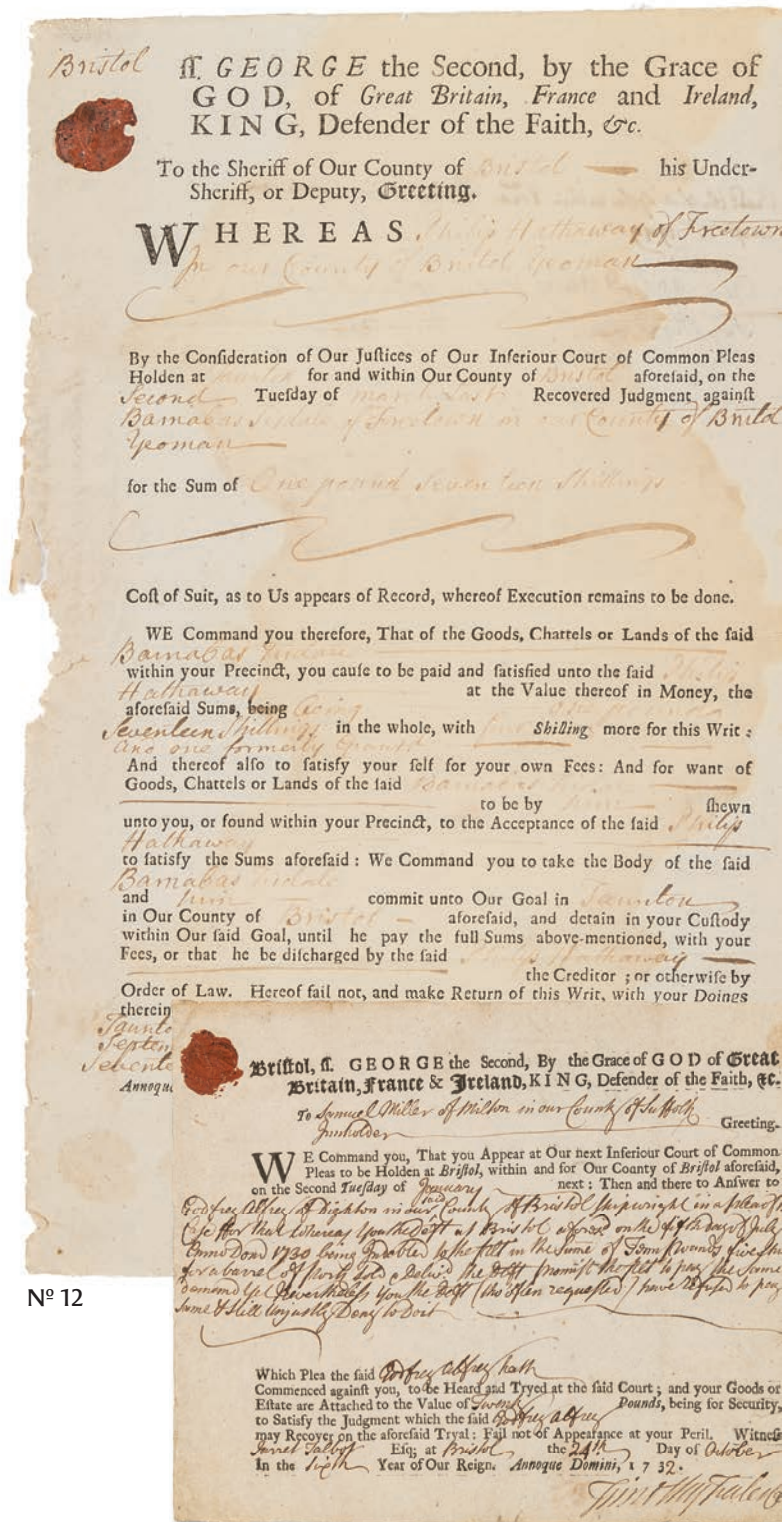 Bristol ſſ. GEORGE the Second, by the Grace of
GOD, of Great Britain, France and Ireland,
KING, Defender of the Faith, &c.
To the Sheriff of Our County of Bristol his Under-
Sheriff, or Deputy, Greeting.
WHEREAS Philip Hathaway of Freetown
In our County of Bristol Yeoman
By the Conſideration of Our Juſtices of Our Inferiour Court of Common Pleas
Holden at for and within Our County of Bristol aforeſaid, on the
Second Tueſday of March Last Recovered Judgment againſt
Barnabas of Freetown in our County of Bristol
Yeoman
for the Sum of One pound Seventeen Shillings
Coſt of Suit, as to Us appears of Record, whereof Execution remains to be done.
WE Command you therefore, That of the Goods, Chattels or Lands of the ſaid
Barnabas
within your Precinct, you cauſe to be paid and ſatisfied unto the ſaid Philip
Hathaway at the Value thereof in Money, the
aforeſaid Sums, being
Seventeen Shillings in the whole, with Shilling more for this Writ :
And one formerly
And thereof alſo to ſatisfy your ſelf for your own Fees: And for want of
Goods, Chattels or Lands of the ſaid Barnabas
to be by him ſhewn
unto you, or found within your Precinct, to the Acceptance of the ſaid Philip
Hathaway
to ſatisfy the Sums aforeſaid : We Command you to take the Body of the ſaid
Barnabas
and him commit unto Our Goal in Taunton
in Our County of Bristol aforeſaid, and detain in your Cuſtody
within Our ſaid Goal, until he pay the full Sums above-mentioned, with your
Fees, or that he be diſcharged by the ſaid Philip Hathaway
the Creditor ; or otherwiſe by
Order of Law. Hereof fail not, and make Return of this Writ, with your Doings
therein
Taunto
Septem
Sevente
Annoque
Briſtol, ſſ. GEORGE the Second, By the Grace of GOD of Great
Britain, France & Ireland, KING, Defender of the Faith, &c.
To Samuel Miller of Milton in our County of Suffolk
Innholder Greeting.
WE Command you, That you Appear at Our next Inferiour Court of Common
Pleas to be Holden at Briſtol, within and for Our County of Briſtol aforeſaid,
on the Second Tueſday of January next : Then and there to Anſwer to
Godfrey Alfrey of Dighton in our said County of Bristol Shipwright in a plea of the
Case for that whereas you the Deft at Bristol aforesd on the fifth day of July
Anno Domi 1730 being Indebted to the Plt in the Sume of pounds five
for a barrel of Pork Sold & Delivd the Deft promist the Plt to pay the Same
demand yet Nevertheless you the Deft (tho often requested) have refused to pay
Same & Still unjustly Deny to Do it
Which Plea the ſaid Godfrey Alfrey hath
Commenced againſt you, to be Heard and Tryed at the ſaid Court ; and your Goods or
Eſtate are Attached to the Value of Twenty Pounds, being for Security,
to Satisfy the Judgment which the ſaid Godfrey Alfrey
may Recover on the aforeſaid Tryal : Fail not of Appearance at your Peril. Witneſs
Jarret Talbot Eſq; at Bristol the 24th Day of October
In the Sixth Year of Our Reign. Annoque Domini, 1732.
Nº 12